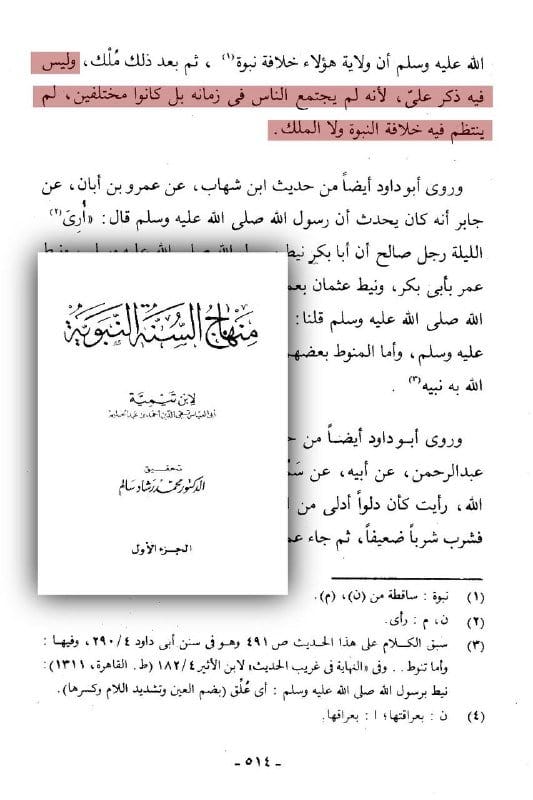 الله عليه وسلم أن ولاية هؤلاء خلافة نبوة(١) ، ثم بعد ذلك مُلْك، وليس
فيه ذكر علىّ، لأنه لم يجتمع الناس فى زمانه بل كانوا مختلفين، لم
ينتظم فيه خلافة النبوة ولا الملك.
وروى أبو داود أيضاً من حديث ابن شهاب، عن عمرو بن أبان، عن
جابر أنه كان يحدث أن رسول الله صلى الله عليه وسلم قال: «أُرِىَ(٢)
الليلة رجل صالح أن أبا بكر نيط برسول الله صلى الله عليه وسلم، ونيط
عمر بأبى بكر، ونيط عثمان بعمر
الله صلى الله عليه وسلم قلنا:
عليه وسلم، وأما المنوط بعضهم
الله به نبيه(٣) .
وروى أبو داود أيضاً من
عبدالرحمن، عن أبيه، عن
الله، رأيت كأن دلواً أدلى من
فشرب شرباً ضعيفاً، ثم جاء
منهاج السنة النبوية
لابن تيمية
أبى العباس تقى الدين أحمد بن عبد الحليم
تحقيق
الدكتور محمد رشاد سالم
الجزء الأول
(١) نبوة : ساقطة من (ن)، (م).
(٢) ن، م : رأى.
(٣) سبق الكلام على هذا الحديث ص ٤٩١ وهو فى سنن أبى داود ٢٩٠/٤، وفيها :
وأما تنوط . . وفى «النهاية فى غريب الحديث» لابن الأثير ١٨٢/٤ (ط. القاهرة، ١٣١١) :
نيط برسول الله صلى الله عليه وسلم : أى عُلِّق (بضم العين وتشديد اللام وكسرها).
(٤) ن : بعراقتها؛ ا : بعراقها.
- ٥١٤ -